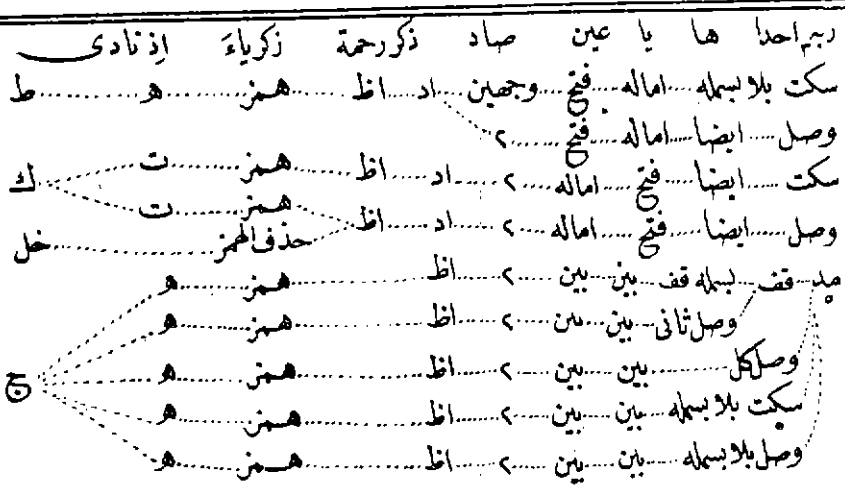 ربه احدا ها يا عين صاد ذكر رحمة زكرياء اذ نادى
سكت بلا بسمله اماله فتح وجهين اد اظ همز ه ط
وصل ايضا اماله فتح ٢
سكت ايضا فتح اماله ٢ اد اظ همز ت ك
همز ت
وصل ايضا فتح اماله ٢ اد اظ حذف الهمز خل
مد قف بسمله قف بين بين ٢ اظ همز ه
وصل ثانى بين بين ٢ اظ همز ه
وصل كل بين بين ٢ اظ همز ه ج
سكت بلا بسمله بين بين ٢ اظ همز ه
وصل بلا بسمله بين بين ٢ اظ همز ه